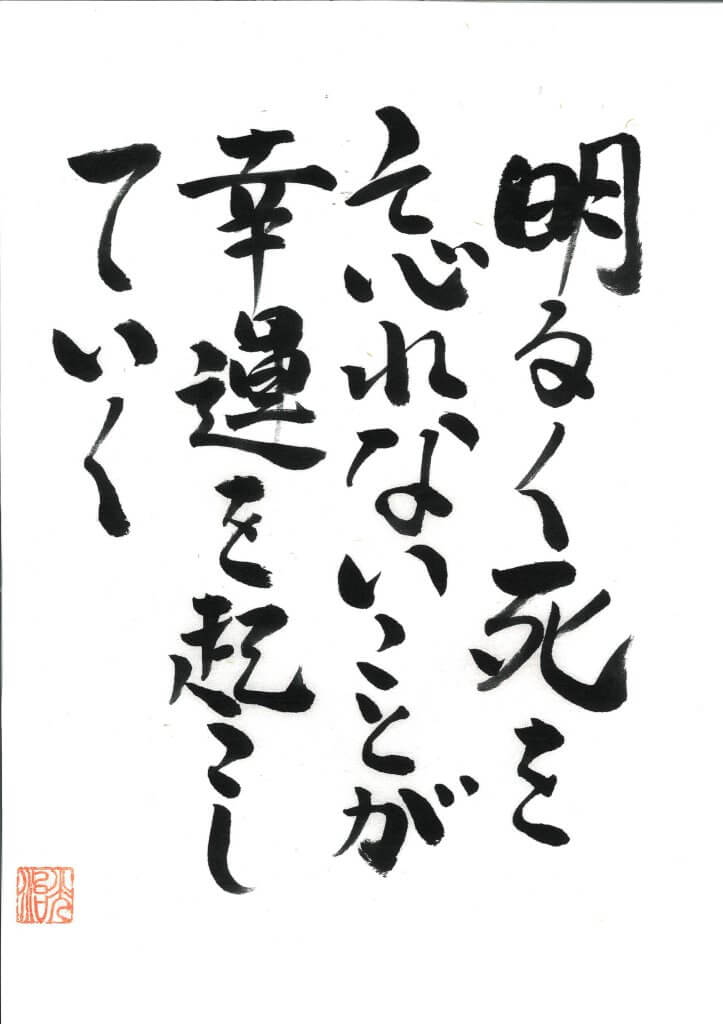 明るく死を
忘れないことが
幸運を起こし
ていく